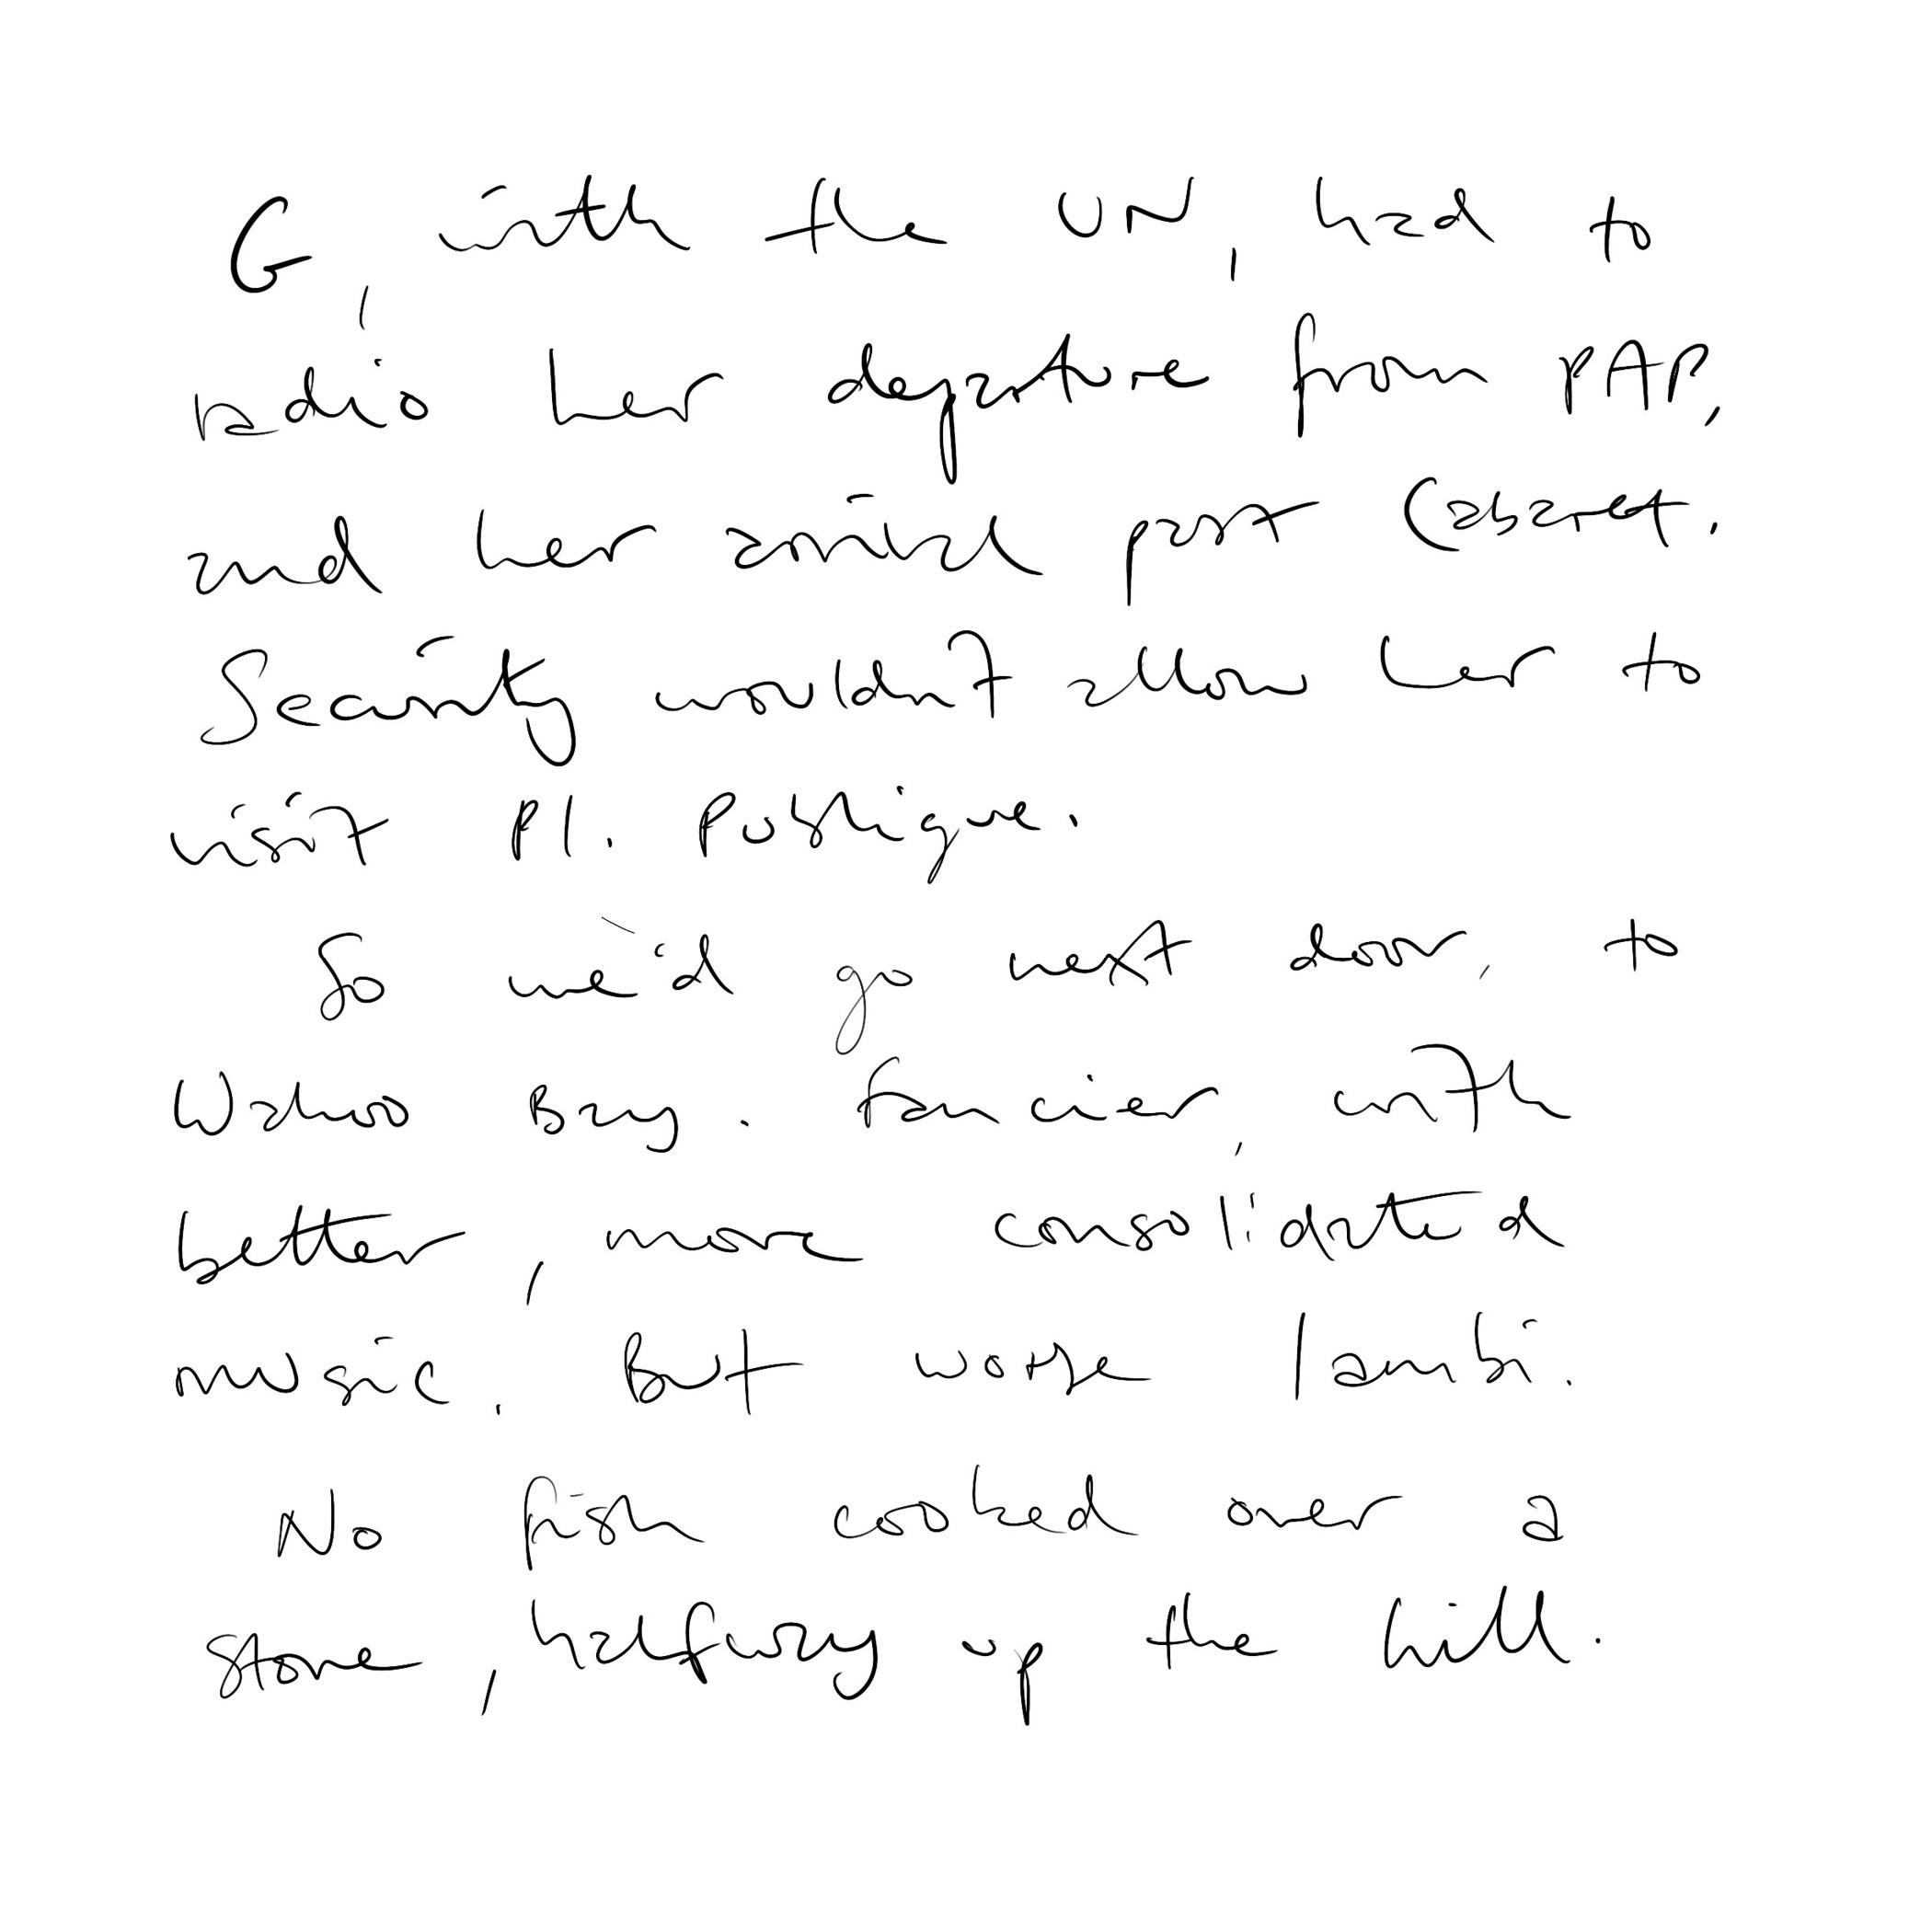 G, with the UN, had to
radio her departure from PAP,
and her arrival post Cabaret.
Security wouldn't allow her to
visit Pl. Publique.
So we'd go next door, to
Wahoo Bay. Fancier, with
better, more consolidated
music. But worse lambi.
No fish cooked over a
stone, halfway up the hill.